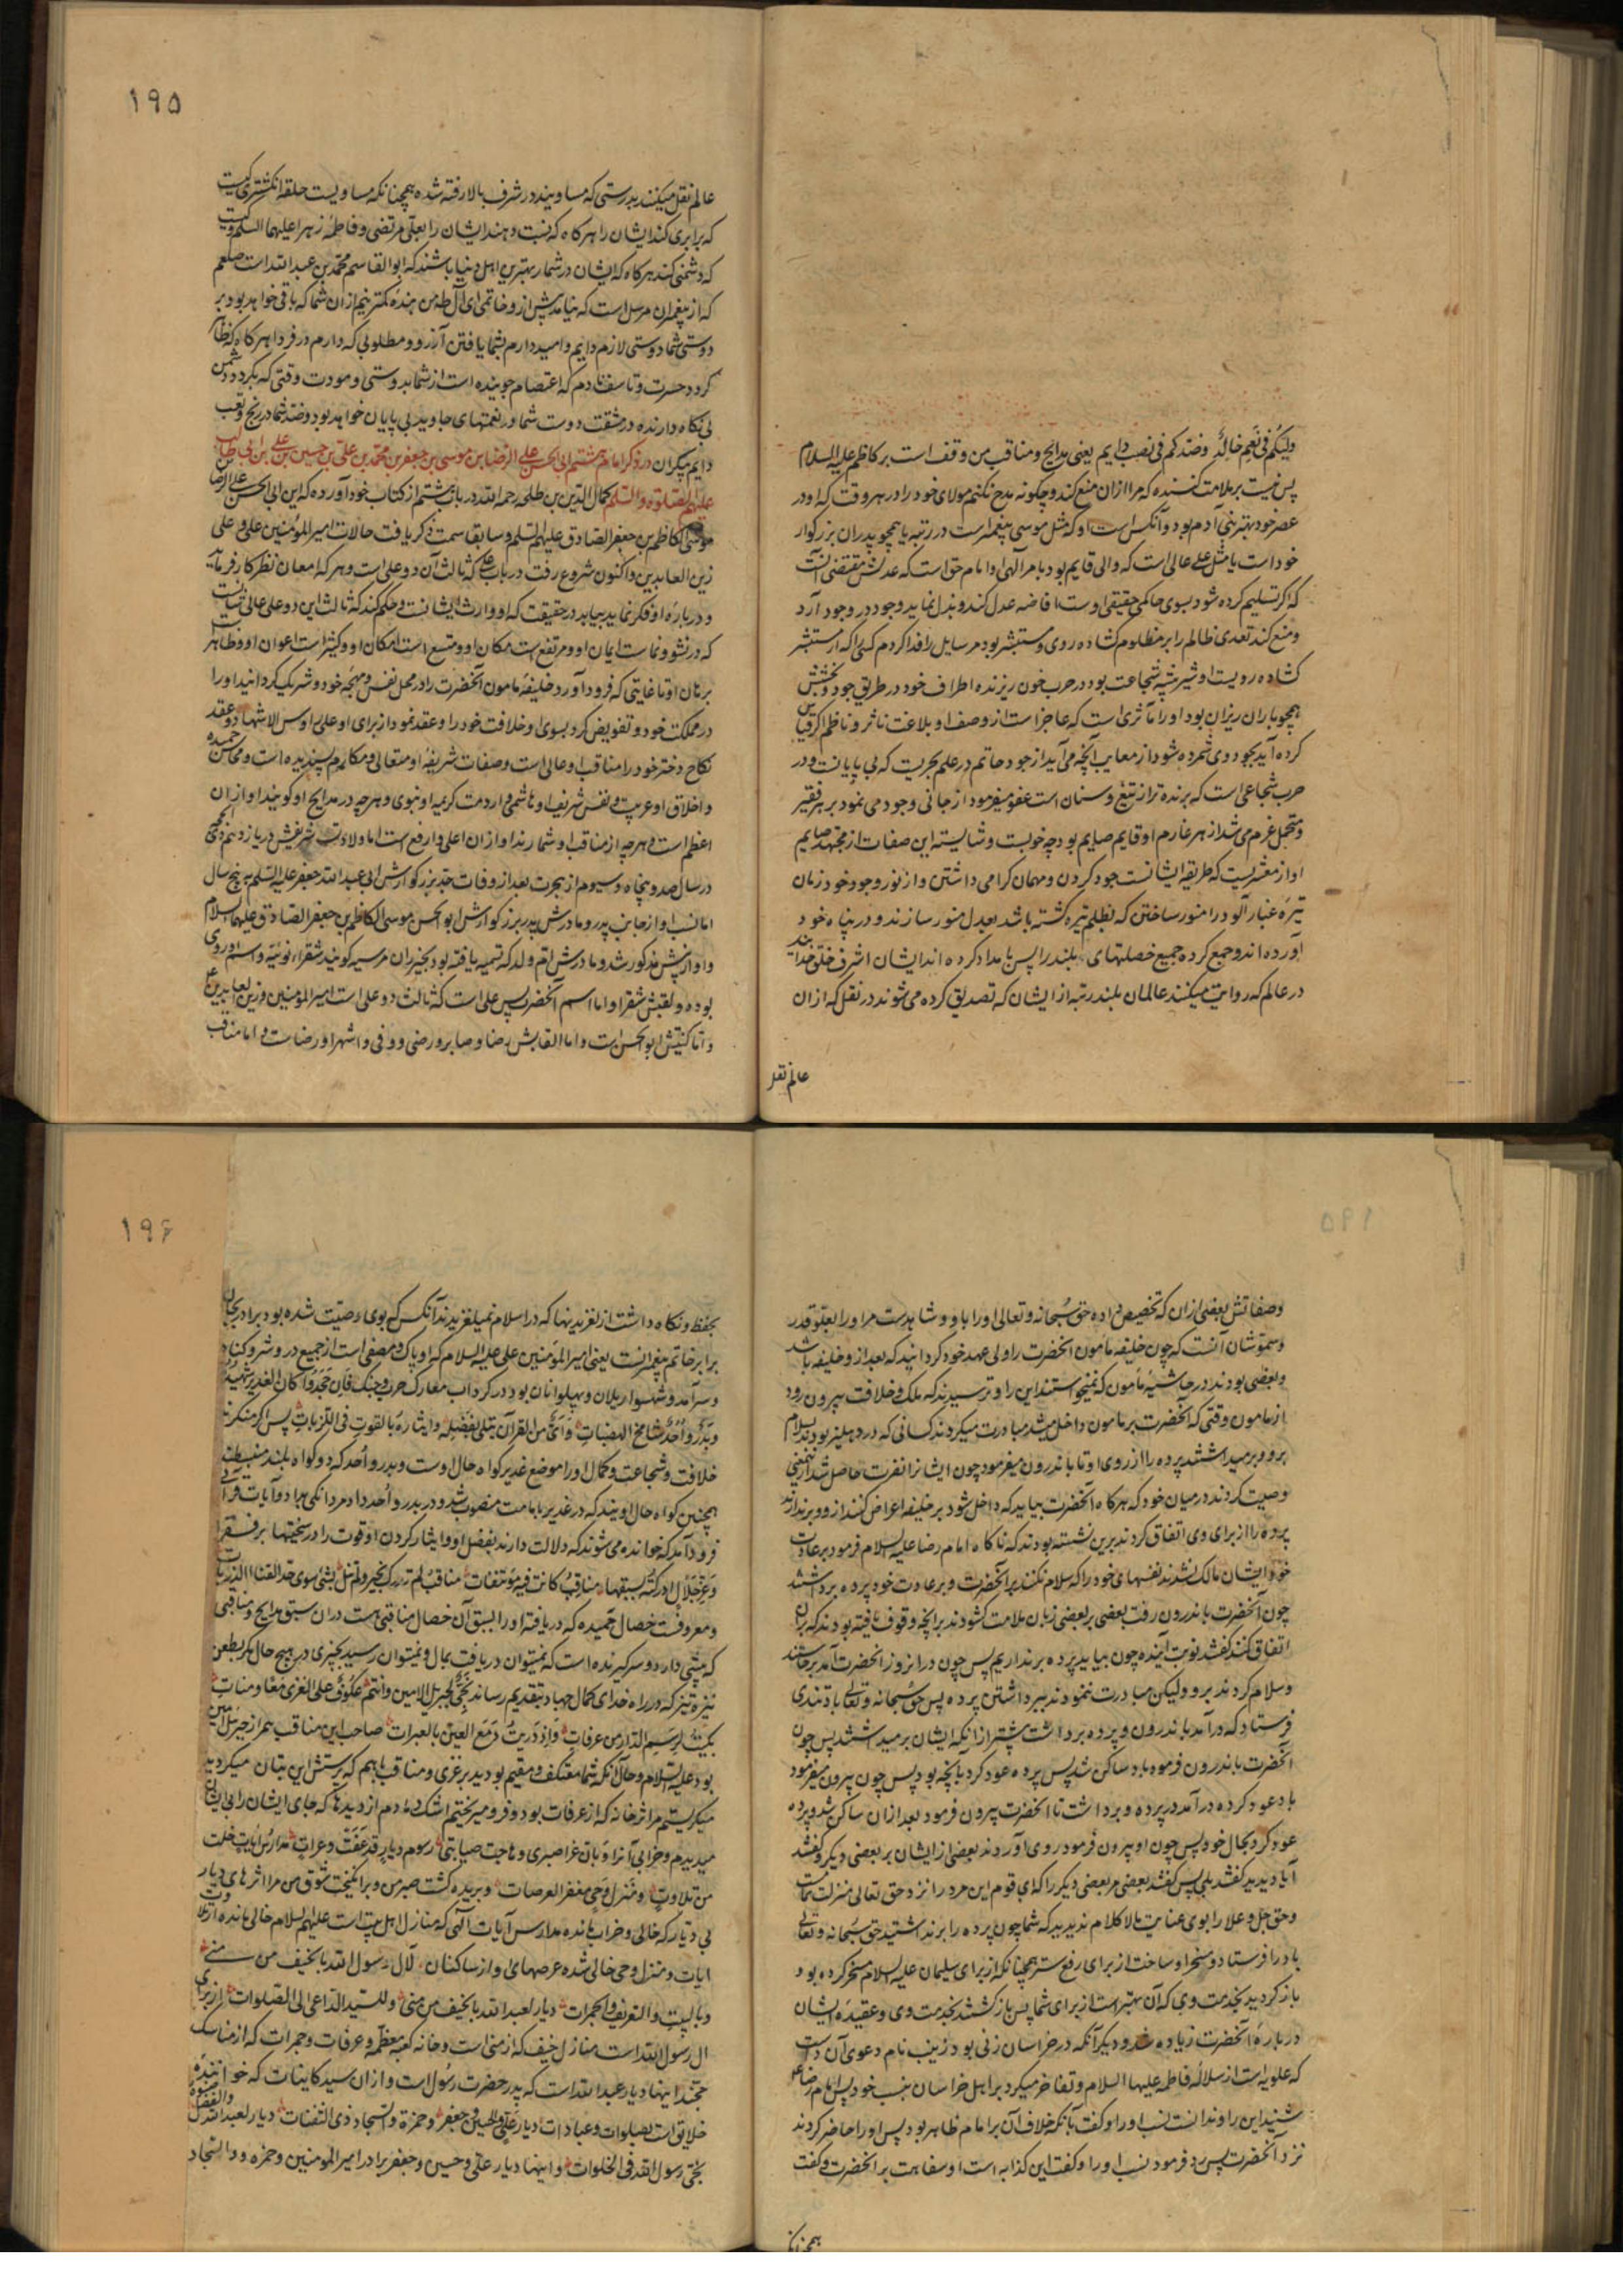 ولیکم فی نعیم خالد وضدکم فی نصب دایم یعنی مدایح ومناقب من وقف است بر کاظم علیه السلام
پس نیست بر ملامت کننده که مرا ازان منع کند وچگونه مدح نکنم مولای خود را در هر وقت که او در
عصر خود بهتر بنی آدم بود وآنکس است او که مثل موسی پیغمبر است در رتبه یا همچو پدران بزرکوار
خود است یا مثل علی عالی است که والی قایم بود بامر آلهی وامام حق است که عدلش مقتضی آنست
که اکر تسلیم کرده شود بسوی حاکمی حقیقی اوست افاضه عدل کند وبذل نماید وجود در وجود آرد
ومنع کند تعدی ظالم را بر مظلوم کشاده روی ومستبشر بود مر سایل را فدا کردم کسی را که از مستبشر
کشاده رویست او شیر بیشه شجاعت بود در حرب خون ریزنده اطراف خود در طریق جود وبخشش
همچو باران ریزان بود او را مآثری است که عاجز است از وصف او بلاغت ناثر وناظم اکر قیاس
کرده آید بجود وی شمرده شود از معایب آنچه می آید از جود حاتم در علم بحریست که بی پایانست ودر
حرب شجاعی است که برنده تر از تیغ وسنان است عفو میفرمود از جانی وجود می نمود بر هر فقیر
ومتحمل غرم می شد از هر غارم او قایم صایم بود چه خوبست وشایسته این صفات از مجتهد صایم
او از معشریست که طریقه ایشانست جود کردن ومهمان کرامی داشتن واز نور وجود خود زمان
تیره غبار آلود را منور ساختن که بظلم تیره کشته باشد بعدل منور سازند ودر پناه خود
آورده اند وجمع کرده جمیع خصلتهای بلند را پس بامداد کرده اند ایشان اشرف خلق خدایند
در عالم که روایت میکنند عالمان بلند رتبه از ایشان که تصدیق کرده می شوند در نقل که ازان
عالم نقل
۱۹۵
عالم نقل میکنند بدرستی که مساویند در شرف بالا رفته شده همچنانکه مساویست حلقه انکشتری کیست
که برابری کند ایشان را هرکاه که نسبت دهند ایشان را بعلی مرتضی وفاطمه زهرا علیهما السلم وکیست
که دشمنی کند هرکاه که ایشان در شمار بهترین اهل دنیا باشند که ابو القاسم محمد بن عبد الله است صلعم
که از پیغمبران مرسل است که نیامد پیش ازو خاتمی ای آل طه من بنده کمترینم ازان شما که باقی خواهد بود بر
دوستی شما دوستی لازم دایم وامید دارم بشما یافتن آرزو ومطلوبی که دارم در فردا هرکاه که ظاهر
کردد حسرت وتاسف نادم که اعتصام جوینده است از شما بدوستی ومودت وقتی که بکردد دشمن
بی نکاه دارنده در مشقت دوست شما در نعمتهای جاوید بی پایان خواهد بود وضد شما در رنج وتعب
دایم بیکران در ذکر امام هشتم ابی الحسن علی الرضا بن موسی بن جعفر بن محمد بن علی بن حسین بن علی ابن ابی طالب
علیهم الصلوة والسلم کمال الدین بن طلحه رحمه الله در باب هشتم از کتاب خود آورده که این ابی الحسن علی الرضا بن
موسی الکاظم بن جعفر الصادق علیهم السلم وسابقا سمت ذکر یافت حالات امیر المؤمنین علی وعلی
زین العابدین واکنون شروع رفت در باب علی که ثالث آن دو علی است وهر که امعان نظر کار فرماید
ودرباره او فکر نماید بیابد در حقیقت که او وارث ایشانست وحکم کند که ثالث این دو علی عالی شانست
که در نشو ونماست ایمان او ومرتفع است مکان او ومتسع است امکان او وکثیر است اعوان او وظاهر است
برهان او تا غایتی که فرود آورد خلیفه مامون آنحضرت را در محل نفس ومهجه خود وشریک کردانید او را
در مملکت خود وتفویض کرد بسوی او خلافت خود را وعقد نمود از برای او علی روس الاشهاد وعقد
نکاح دختر خود را مناقب او عالی است وصفات شریفه او متعالی ومکارم پسندیده است ومحاسن حمیده
واخلاق او عربیت ونفس شریف او هاشمی وارومت کریمه او نبوی وهرچه در مدایح او کویند او ازان
اعظم است وهرچه از مناقب او شمارند او ازان اعلی وارفع است اما ولادت شریفش در یازدهم ذی الحجه
در سال صد وپنجاه وسیوم از هجرت بعد از وفات جد بزرکوارش ابی عبد الله جعفر علیه السلم به پنج سال
اما نسب او از جانب پدر ومادرش پدر بزرکوارش ابو الحسن موسی الکاظم بن جعفر الصادق علیهما السلام
واو از پیش مذکور شد ومادرش ام ولد که تسمیه یافته بود بخیزران مرسیه کویند شقراء نوبیه واسم او اروی
بوده ولقبش شقرا واما اسم آنحضرت پس علی است که ثالث دو علی است امیر المؤمنین وزین العابدین
واما کنیتش ابو الحسن است واما القابش رضا وصابر ورضی ووفی واشهر او رضاست واما مناقب
وصفاتش بعضی ازان که تخصیص داده حق سبحانه وتعالی او را باو وشاهدست مر او را بعلو قدر
وسمو شان آنست که چون خلیفه مامون آنحضرت را ولی عهد خود کردانید که بعد ازو خلیفه باشد
وبعضی بودند در حاشیه مامون که نمیخواستند این را وترسیدند که ملک وخلافت بیرون رود
از مامون وقتی که آنحضرت بر مامون داخل میشد مبادرت میکردند کسانی که در دهلیز بودند بسلام
برو وبرمیداشتند پرده را از روی او تا باندرون میفرمود چون ایشانرا نفرت حاصل شد ازینمعنی
وصیت کردند در میان خود که هرکاه آنحضرت بیاید که داخل شود بر خلیفه اعراض کنند ازو وبرندارند
پرده را از برای وی اتفاق کردند برین نشسته بودند که ناکاه امام رضا علیه السلام فرمود بر عادت
خود ایشان مالک نشدند نفسهای خود را که سلام نکنند بر آنحضرت وبر عادت خود پرده برداشتند
چون آنحضرت باندرون رفت بعضی بر بعضی زبان ملامت کشودند بر آنچه وقوف یافته بودند که بران
اتفاق کنند کفتند نوبت آینده چون بیاید پرده برنداریم پس چون در آنروز آنحضرت آمد برخاستند
وسلام کردند برو ولیکن مبادرت ننمودند ببرداشتن پرده پس حق سبحانه وتعالی باد تندی
فرستاد که درآمد باندرون وپرده برداشت بیشتر از آنکه ایشان برمیداشتند پس چون
آنحضرت باندرون فرمود باد ساکن شد پس پرده عود کرد بآنچه بود پس چون بیرون میفرمود
باد عود کرده درآمد در پرده وبرداشت تا آنحضرت بیرون فرمود بعد ازان ساکن شد وپرده
عود کرد بحال خود پس چون او بیرون فرمود روی آوردند بعضی از ایشان بر بعضی دیکر وکفتند
آیا دیدید کفتند بلی پس کفتند بعضی مر بعضی دیکر را که ای قوم این مرد را نزد حق تعالی منزلت هست
وحق جل وعلا را بوی عنایت مالا کلام ندیدید که شما چون پرده را برنداشتید حق سبحانه وتعالی
باد را فرستاد ومسخر او ساخت از برای رفع ستر همچنانکه از برای سلیمان علیه السلام مسخر کرده بود
باز کردید بخدمت وی که آن بهتر است از برای شما پس بازکشتند بخدمت وی وعقیده ایشان
درباره آنحضرت زیاده شد ودیکر آنکه در خراسان زنی بود زینب نام دعوی آن داشت
که علویه است از سلاله فاطمه علیها السلام وتفاخر میکرد بر اهل خراسان بنسب خود پس امام رضا
شنید این را وندانست نسب او را وکفت بآنکه خلاف آن بر امام ظاهر بود پس او را حاضر کردند
نزد آنحضرت پس رد فرمود نسب او را وکفت این کذابه است او سفاهت بر آنحضرت وکفت
۱۹۶
بحفظ ونکاه داشت از لغزیدنها که در اسلام نمیلغزیدند آنکس که بوی وصیت شده بود برادر بجان
برابر خاتم پیغمبرانست یعنی امیر المؤمنین علی علیه السلام که او پاک ومصفی است از جمیع دروشر وکناه
وسرآمد وشهسوار یلان وپهلوانان بود در کرداب معارک حرب وجنک فان جحدوا کان الغدیر شهیده
وبدر واحد شامخ الهضبات وآی من القرآن تتلی بفضله وایثاره بالقوت فی اللزبات پس اکر منکر
خلافت وشجاعت وکمال او را موضع غدیر کواه حال اوست وبدر واحد که دو کواه بلند منبسطند
همچنین کواه حال اویند که در غدیر بامامت منصوب شد ودر بدر واحد داد مردانکی بداد وآیات قرآنی
فرود آمد که خوانده می شوند که دلالت دارند بفضل او وایثار کردن او قوت را در سختیها بر فقرا
وعز جلال ادرکته بسبقها مناقب کانت فیه مؤتنفات مناقب لم تدرک بخیر ولم تنل بشئ سوی حد القنا الذربات
ومعروفست خصال حمیده که دریافته او را بسبق آن خصال مناقبی هست دران سبق مدایح ومناقبی
که پیشی دارد وسر کیرنده است که نمیتوان دریافت بمال ونمیتوان رسید بچیزی در هیچ حال مکر بطعن
نیزه تیز که در راه خدای کمال جهاد بتقدیم رساند نجی لجبریل الامین وانتم عکوف علی العزی معا ومنات
بکیت لرسم الدار من عرفات واذریت دمع العین بالعبرات صاحب این مناقب همراز جبرئیل امین
بود علیه السلام وحال آنکه شما معتکف ومقیم بودید بر عزی ومناة باهم که پرستش این بتان میکردید
میکریستم مر اثر خانه که از عرفات بود وفرو میریختم اشک دمادم از دیدها که جای ایشان را بی ایشان
میدیدم وخرابی آنرا وبان عرا صبری وهاجت صبابتی رسوم دیار قد عفت وعرات مدارس آیات خلت
من تلاوت ومنزل وحی مقفر العرصات وبریده کشت صبر من وبرانکیخت شوق من مرا اثرهای دیار
بی دیار که خالی وخراب مانده مدارس آیات آلهی که منازل اهل بیت است علیهم السلام خالی مانده از تلاوت
ایات ومنزل وحی خالی شده عرصهای او از ساکنان لآل رسول الله بالخیف من منی
وبالبیت والتعریف والجمرات دیار لعبد الله بالخیف من منی وللسید الداعی الی الصلوات از برای
ال رسول الله است منازل خیف که از منی است وخانه کعبه معظمه وعرفات وجمرات که از مناسک
حجند اینها دیار عبد الله است که پدر حضرت رسول است وازان سید کاینات که خواننده
خلایق است بصلوات وعبادات دیار علی والحسین وجعفر وحمزة والسجاد ذی الثفنات دیار لعبد الله والفضل صنوه
نجی رسول الله فی الخلوات واینها دیار علی وحسین وجعفر برادر امیر المومنین وحمزه والسجاد